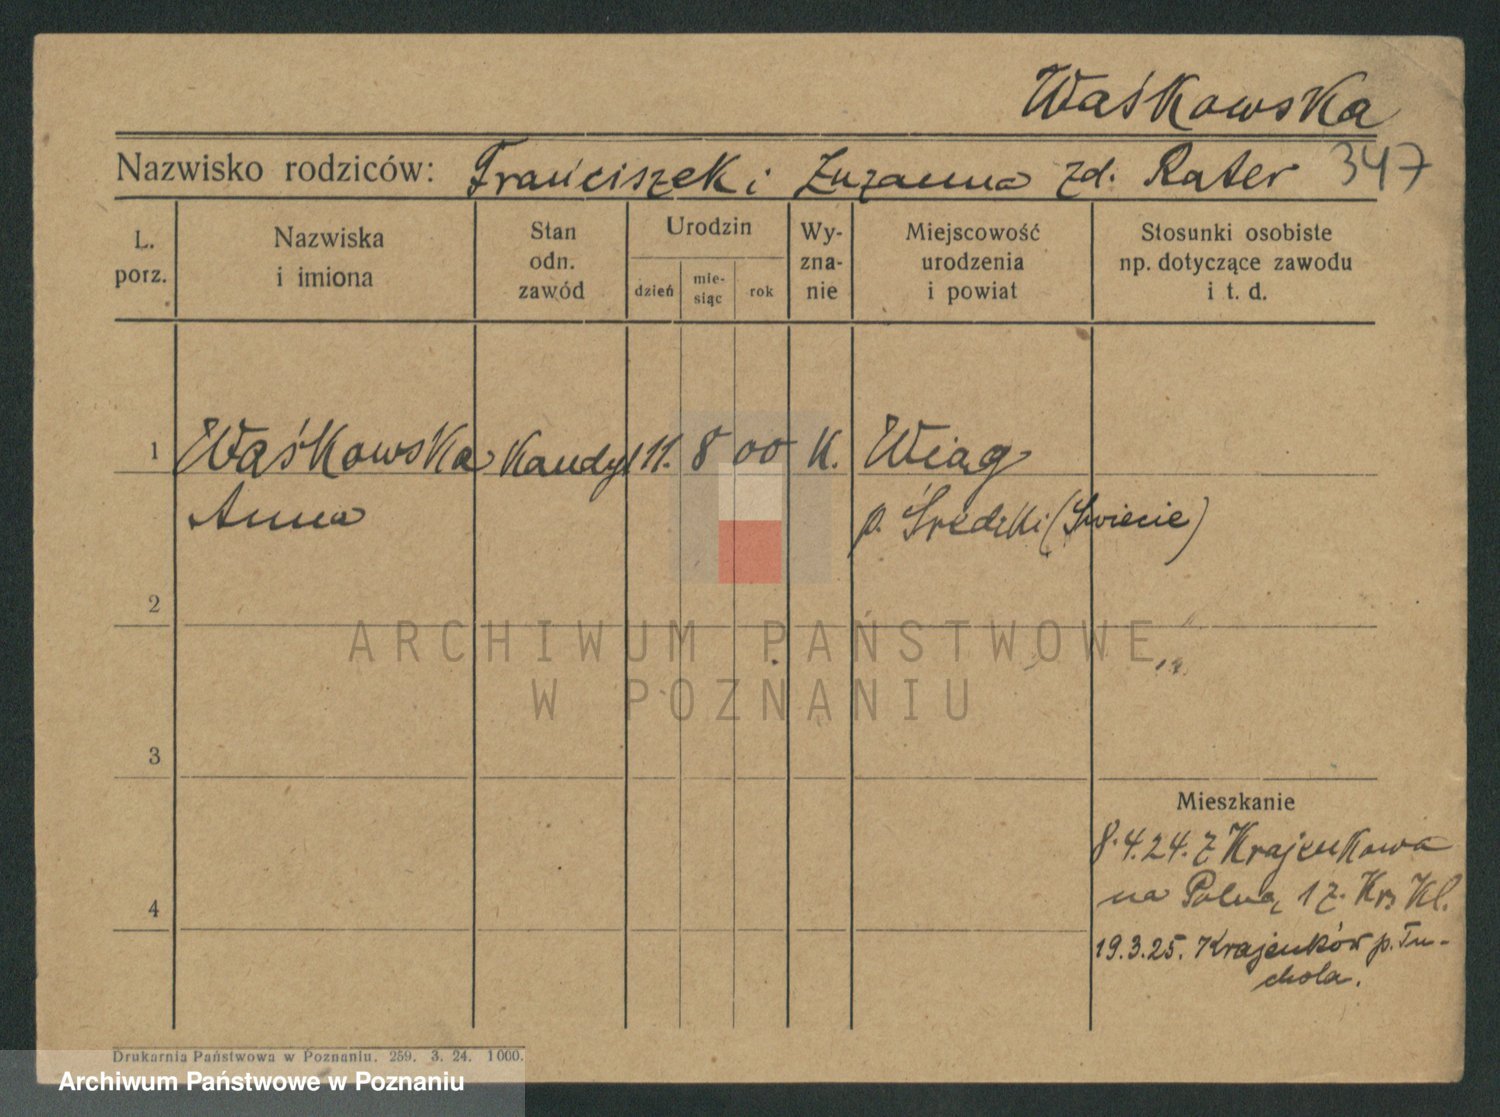 Waśkowska
Nazwisko rodziców: Franciszek i Zuzanna zd. Rater 347
L. porz.
Nazwiska i imiona
Stan odn. zawód
Urodzin
dzień
mie-siąc
rok
Wy-zna-nie
Miejscowość urodzenia i powiat
Stosunki osobiste np. dotyczące zawodu i t. d.
1 Waśkowska Kandyl 11. 8 00 K. Wiąg
Anna p. (Swiecie)
2
ARCHIWUM PAŃSTWOWE
W POZNANIU
3
Mieszkanie
8.4.24. z Krajenkowa
4 na Polną 1 z.
19.3.25. Krajenków p. Tu-
chola.
Drukarnia Państwowa w Poznaniu. 259. 3. 24. 1000.
Archiwum Państwowe w Poznaniu